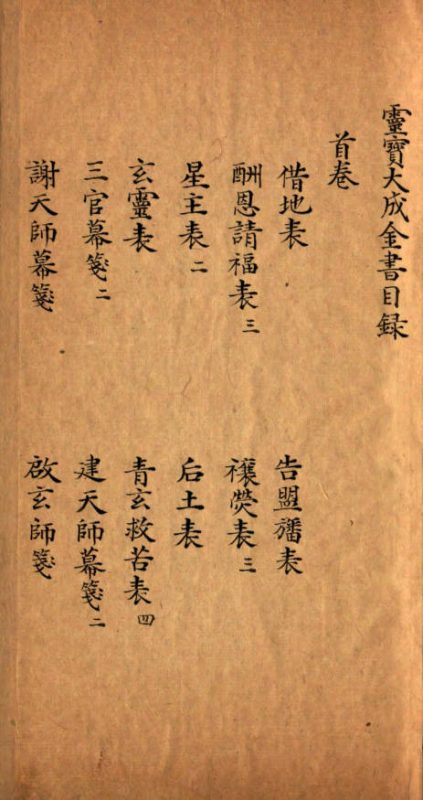 靈寶大成金書目録
首卷
借地表
告盟旛表
酬恩請福表三
禳熒表三
星主表二
后土表
玄靈表
青玄救苦表四
三官幕箋二
建天師幕箋二
謝天師幕箋
啟玄師箋